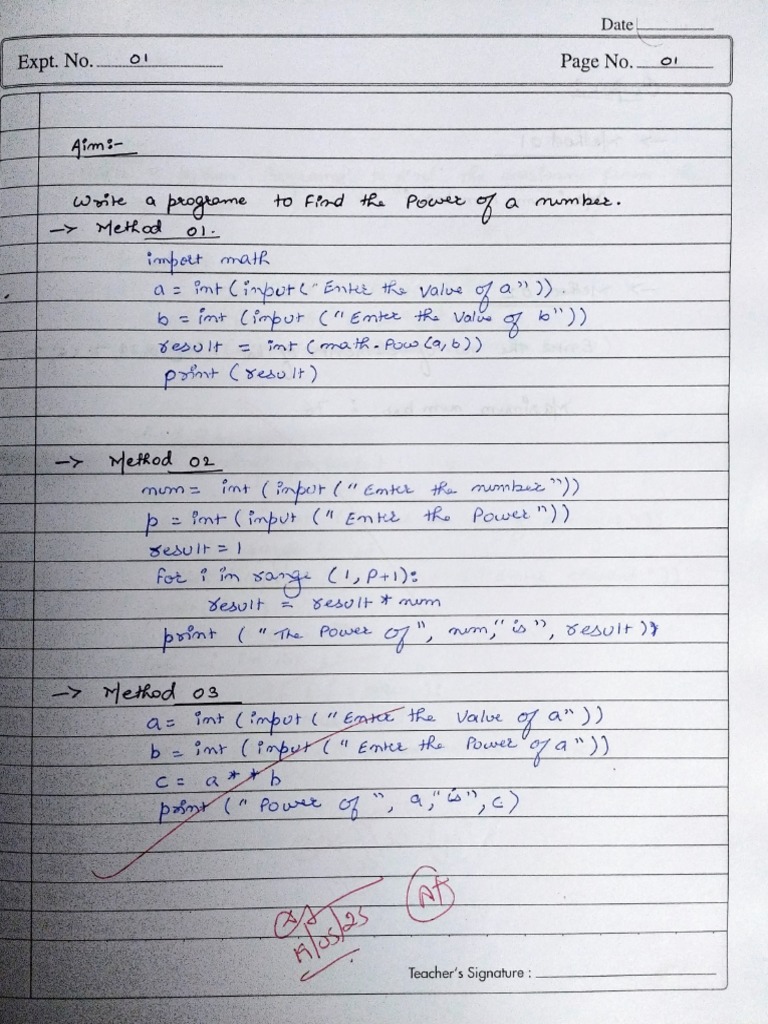 Date
Expt. No. 01
Page No. 01
Aim:-
Write a programe to Find the Power of a number.
→ Method 01.
import math
a = int (input ("Enter the value of a"))
b = int (input ("Enter the Value of b"))
result = int (math.Pow(a,b))
print (result)
→ Method 02
num = int (input ("Enter the number"))
p = int (input ("Enter the Power"))
result = 1
For i in range (1, P+1):
result = result * num
print ("The Power of", num,"is", result))
→ Method 03
a = int (input ("Enter the Value of a"))
b = int (input ("Enter the Power of a"))
c = a ** b
print ("Power of", a,"is", c)
A+
19/05/25
Teacher's Signature :